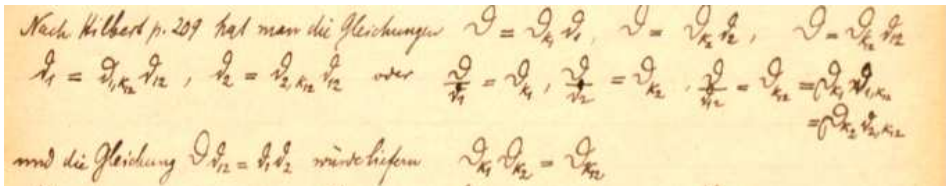 Nach Hilbert p. 209 hat man die Gleichungen 𝔇 = 𝔇_{K_1} 𝔡_1, 𝔇 = 𝔇_{K_2} 𝔡_2, 𝔇 = 𝔇_{K_{12}} 𝔡_{12}
𝔡_1 = 𝔡_{1,K_{12}} 𝔡_{12}, 𝔡_2 = 𝔡_{2,K_{12}} 𝔡_{12} oder 𝔇/𝔡_1 = 𝔇_{K_1}, 𝔇/𝔡_2 = 𝔇_{K_2}, 𝔇/𝔡_{12} = 𝔇_{K_{12}} = 𝔇_{K_1} 𝔡_{1,K_{12}}
= 𝔇_{K_2} 𝔡_{2,K_{12}}
und die Gleichung 𝔇 𝔡_{12} = 𝔡_1 𝔡_2 würde liefern 𝔇_{K_1} 𝔇_{K_2} = 𝔇_{K_{12}}